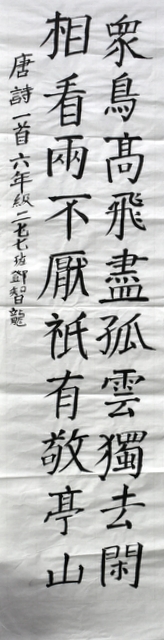 衆鳥髙飛盡孤雲獨去閑
相看兩不厭祇有敬亭山
唐詩一首 六年級 二七七班 鄧智龍